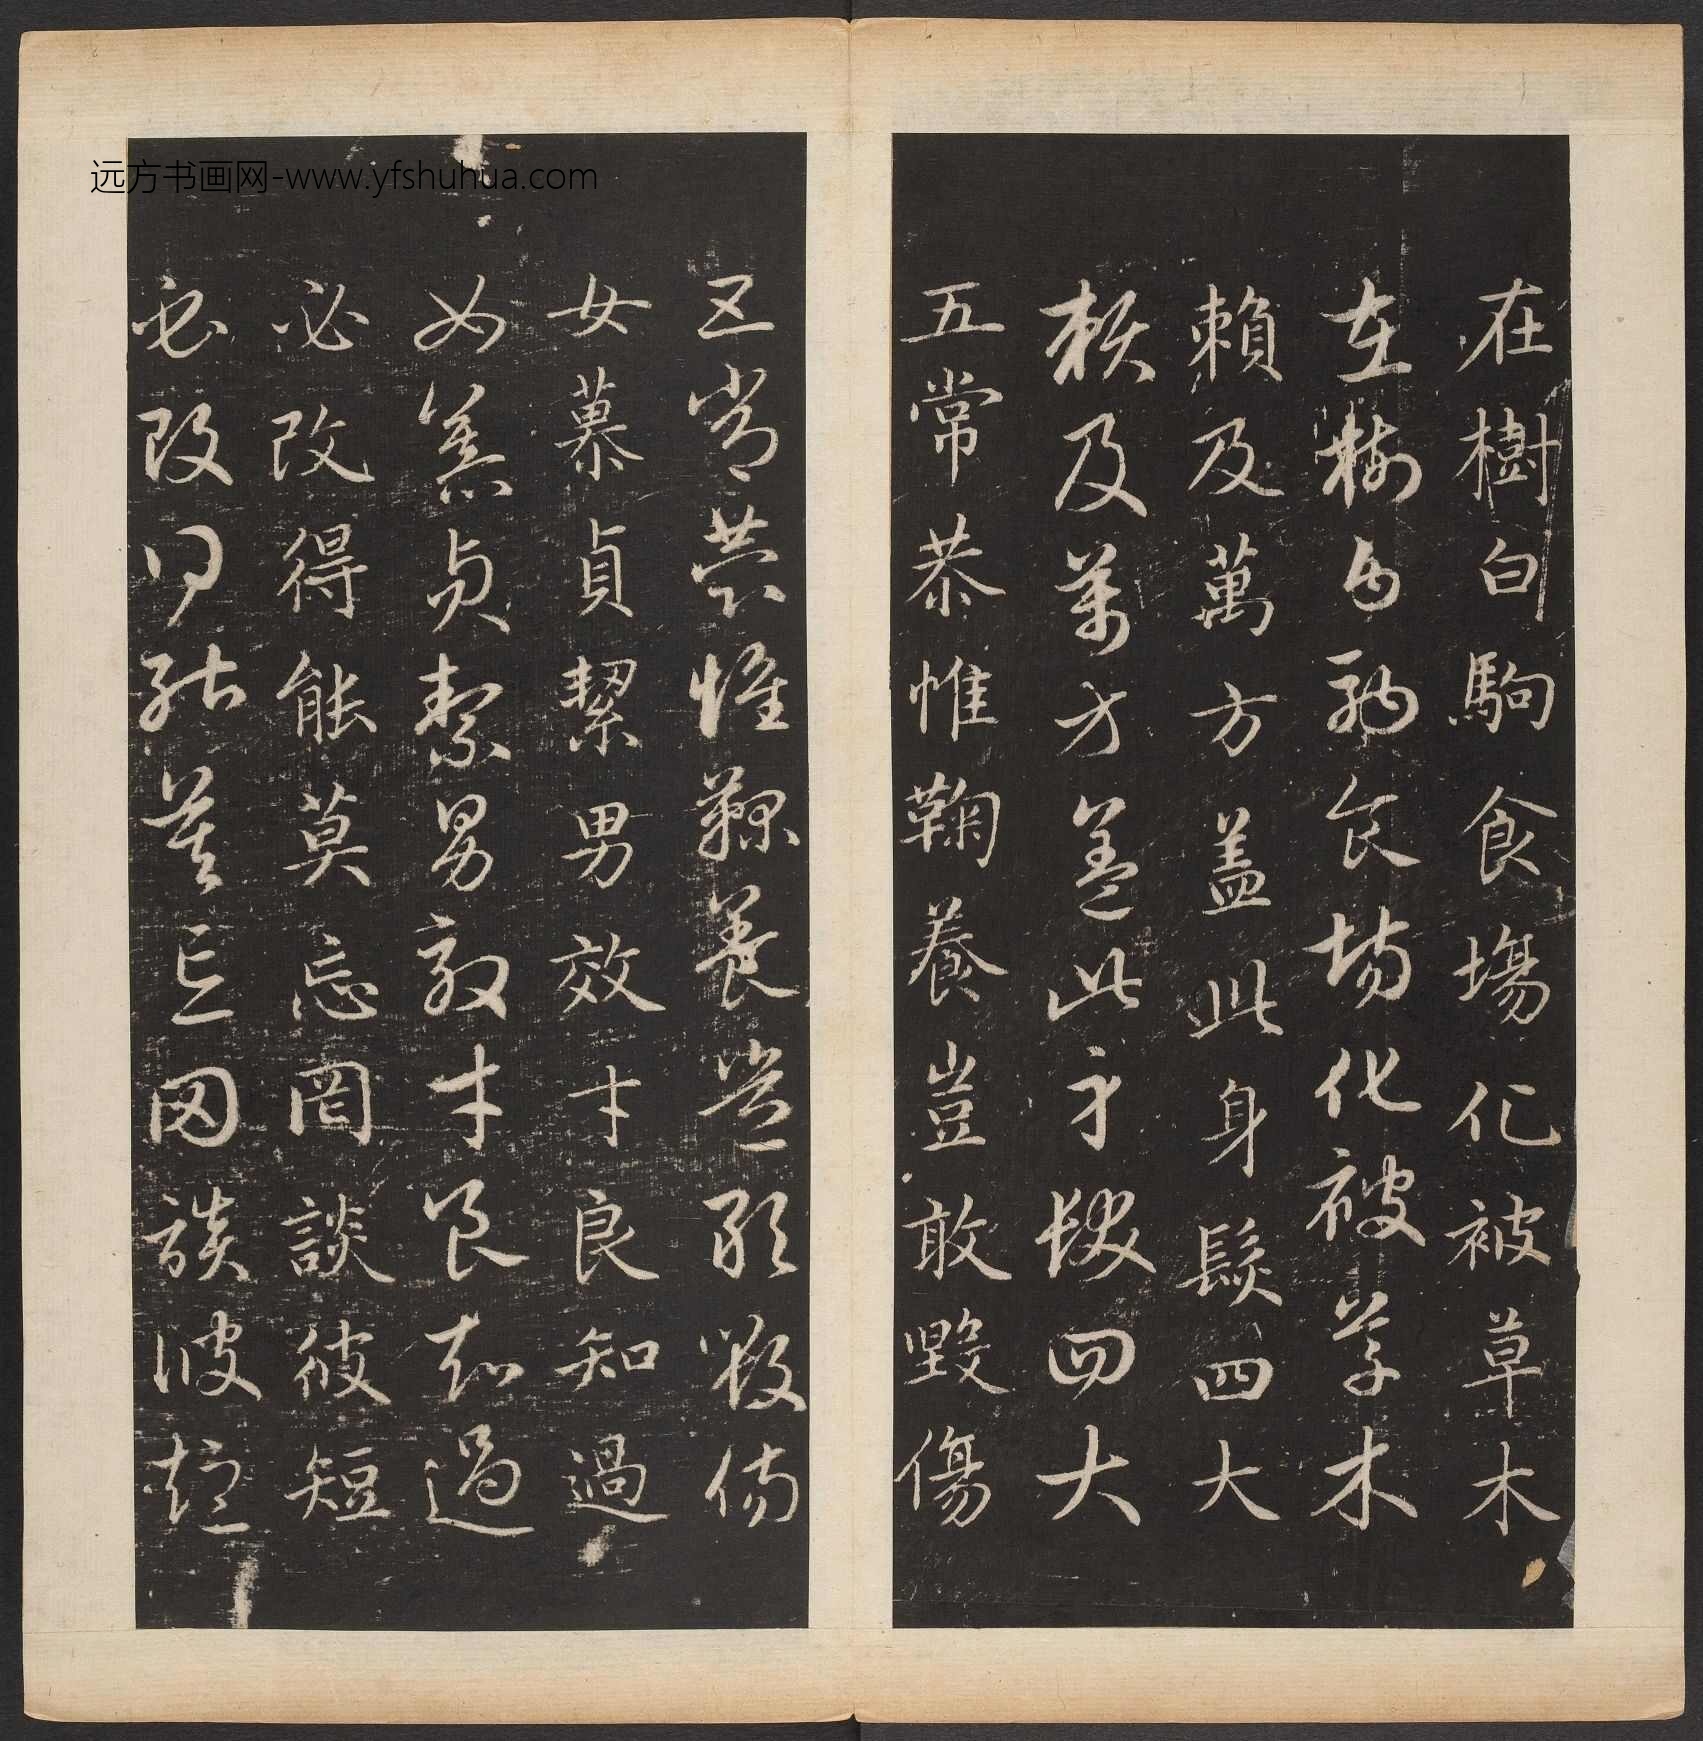 在樹白駒食場化被草木
在樹白駒食場化被草木
賴及萬方盖此身髮四大
賴及萬方盖此身髮四大
五常恭惟鞠養豈敢毀傷
五常恭惟鞠養豈敢毀傷
女慕貞絜男效才良知過
女慕貞絜男效才良知過
必改得能莫忘罔談彼短
必改得能莫忘罔談彼短
远方书画网-www.yfshuhua.com